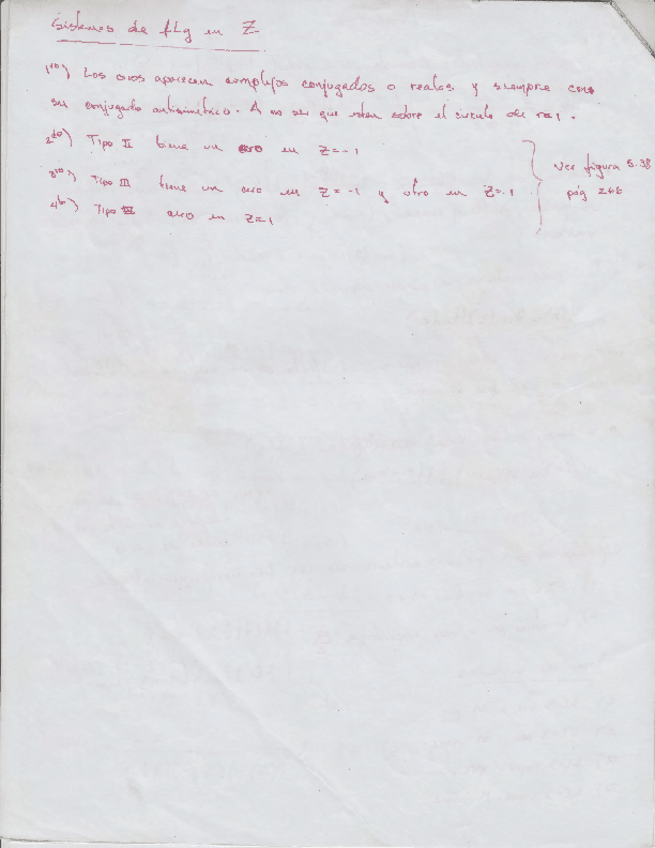 Sistemas de fLg en Z
1ro) Los ceros aparecen complejos conjugados o reales y siempre con
su conjugado antisimétrico. A no ser que esten sobre el circulo de r=1.
2do) Tipo II tiene un cero en Z=-1
3ro) Tipo III tiene un cero en Z=-1 y otro en Z=1
4to) Tipo IV cero en Z=1
Ver figura 5.38
pág 246